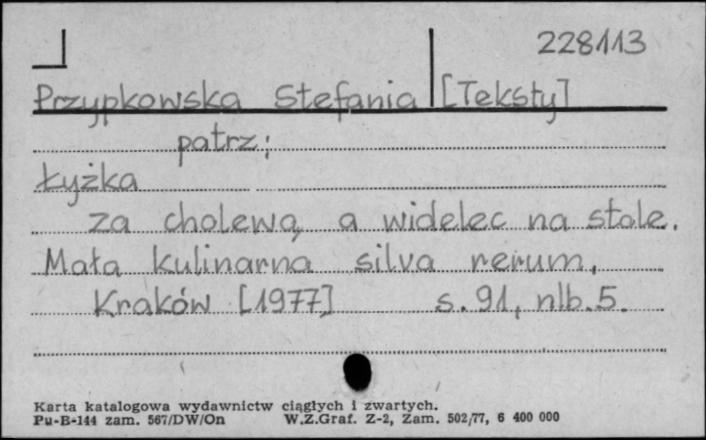 228113
Przypkowska Stefania [Teksty]
patrz:
Łyżka
za cholewą, a widelec na stole.
Mała kulinarna silva rerum.
Kraków [1977] s. 91, nlb. 5.
Karta katalogowa wydawnictw ciągłych i zwartych.
Pu-B-144 zam. 567/DW/On W.Z.Graf. Z-2, Zam. 502/77, 6 400 000